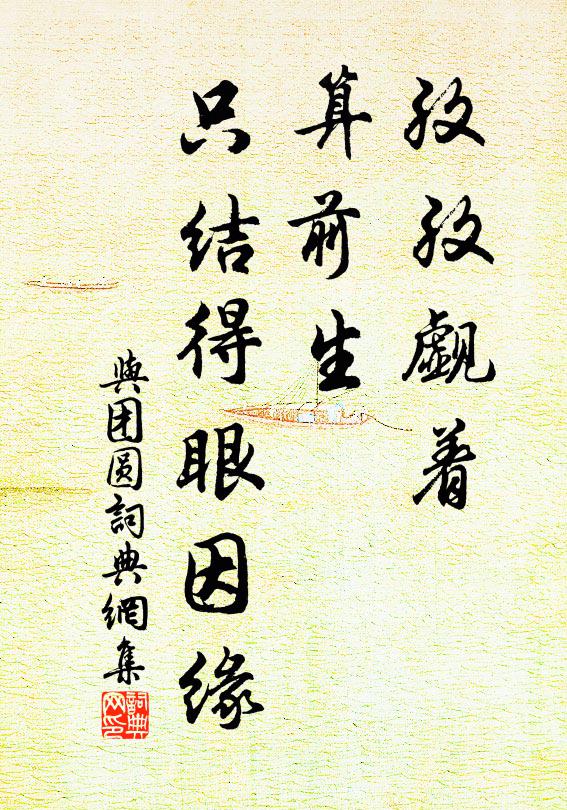 孜孜觑着
算前生
只结得眼因缘
與团圆詞典網集
詞典
网印